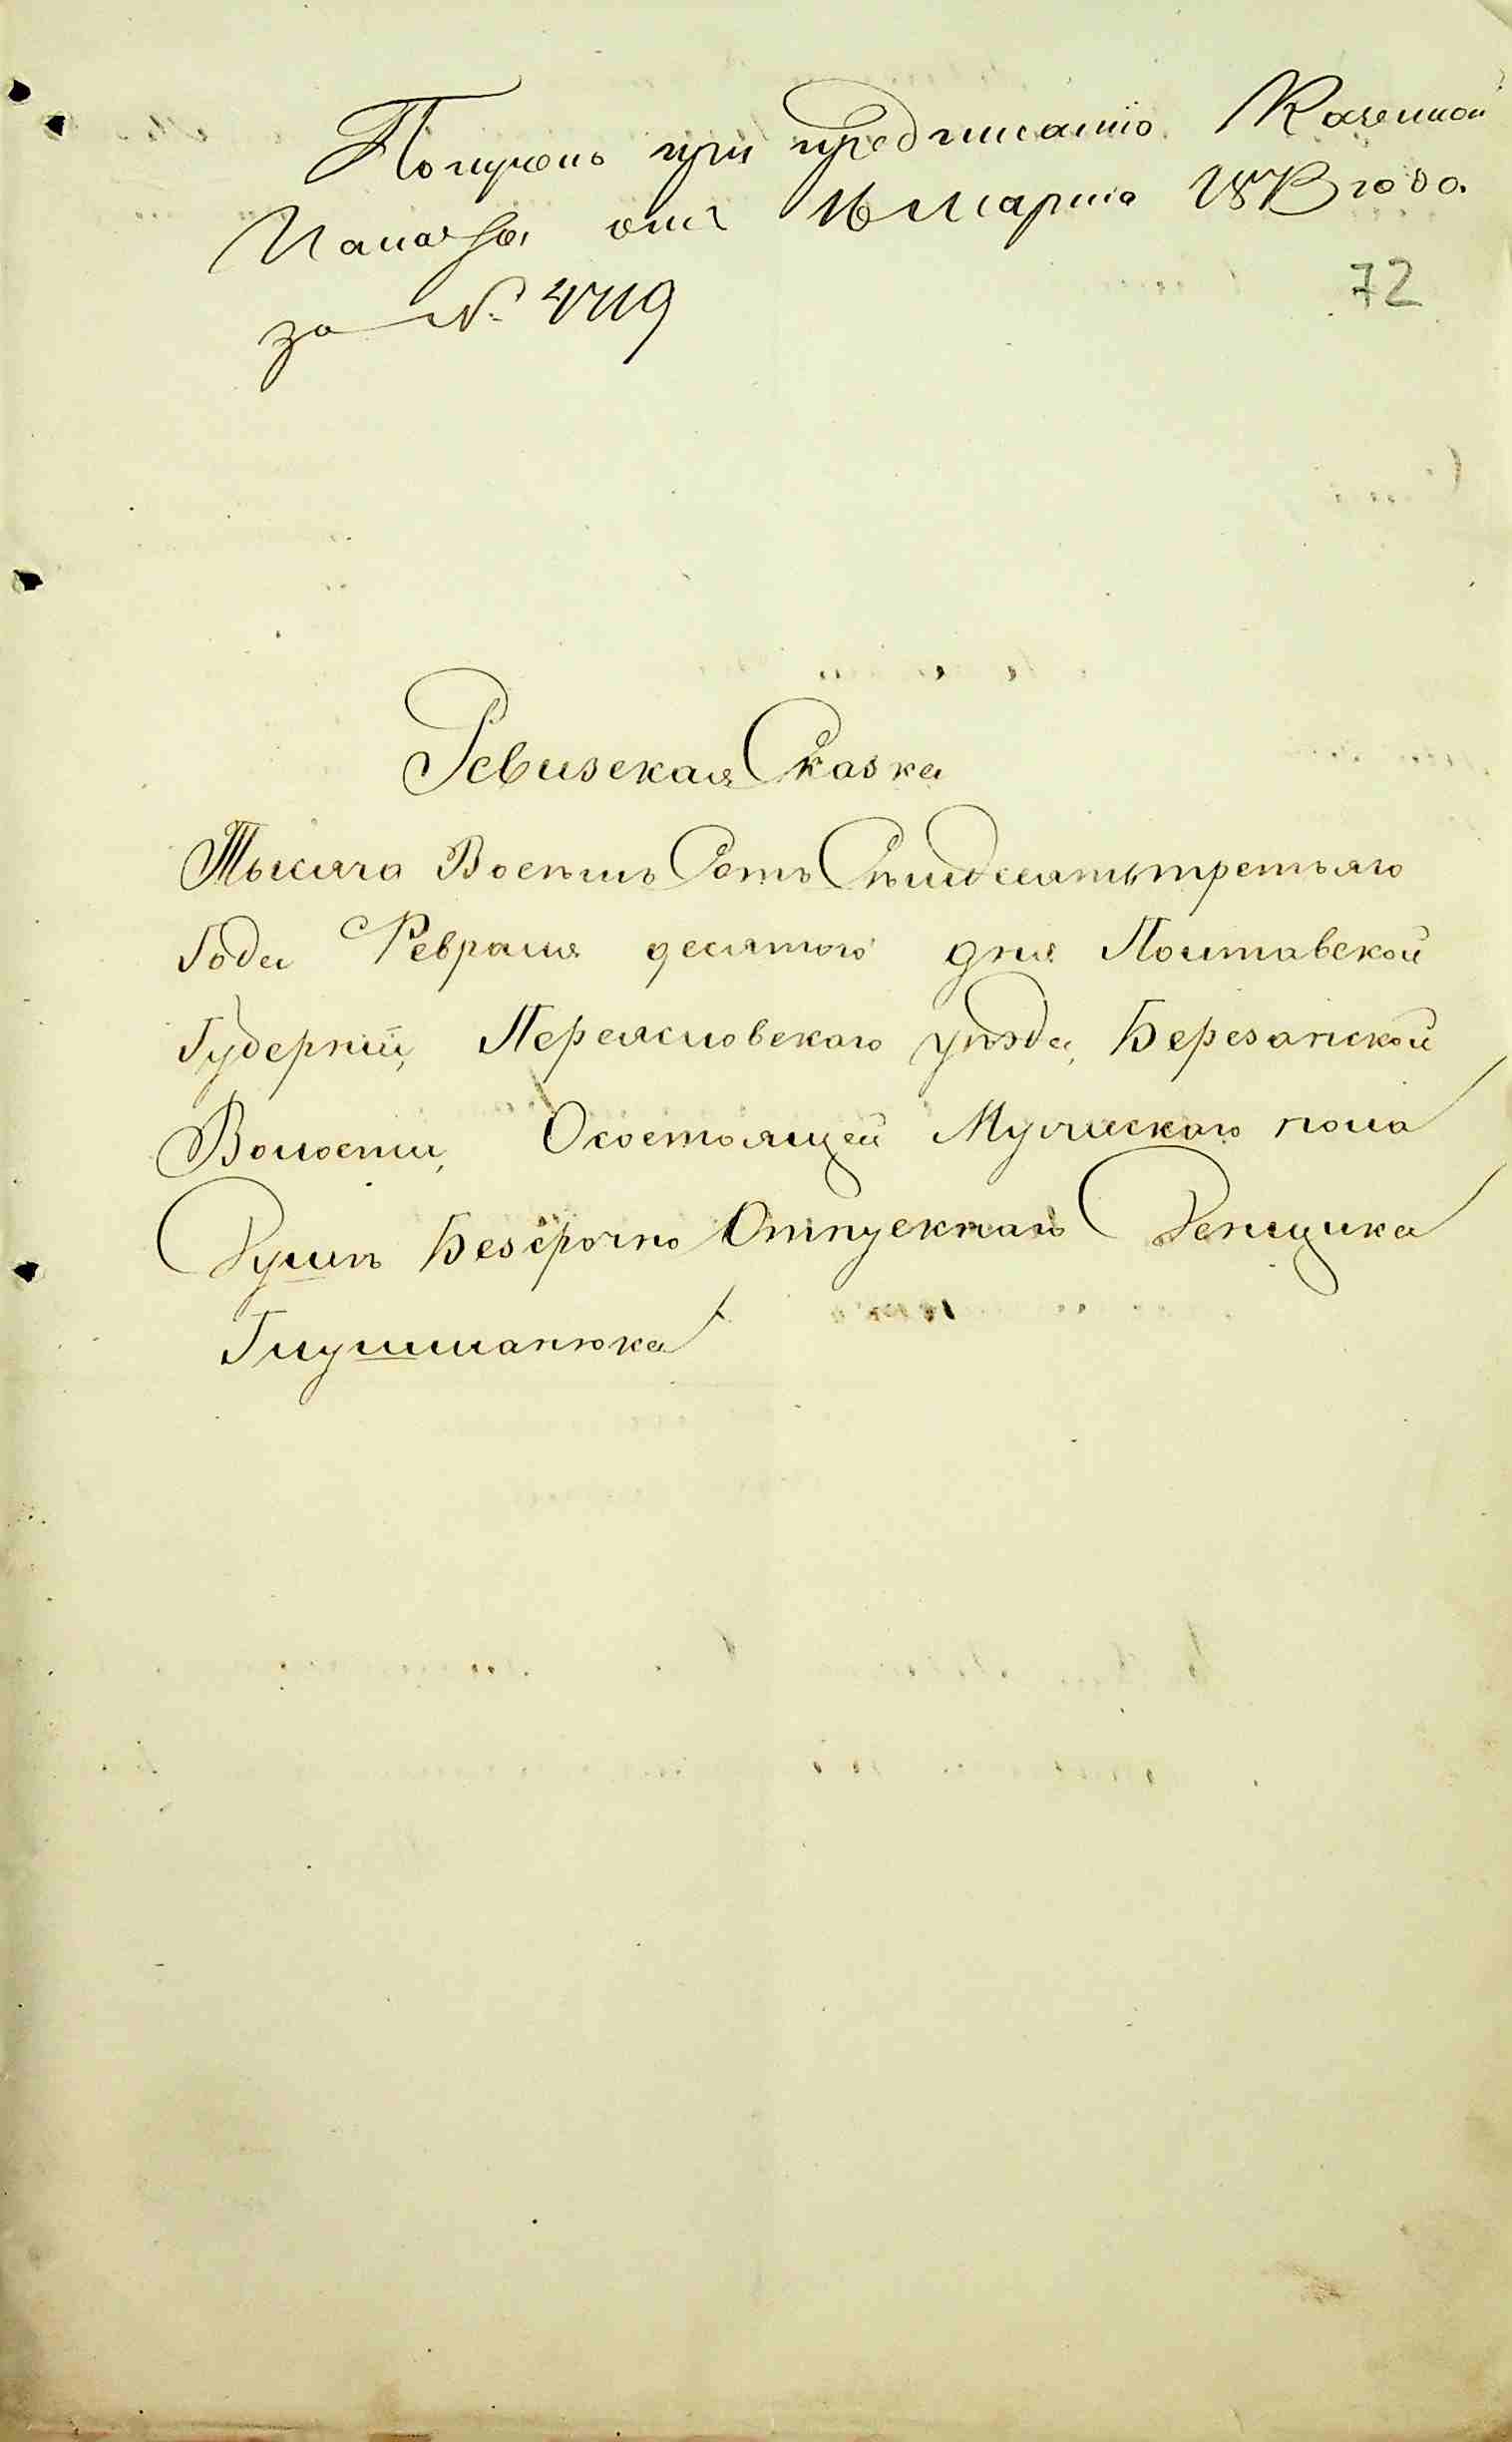 Получено при предписанію Казенной
Палаты отъ 16 Марта 1873 года
за № 4719
72
Ревизская Сказка
Тысяча Восѣмь Сотъ Сѣмдесять третьяго
Года Февраля десятого дня Полтавской
Губерніи, Переясловского уѣзда, Березанской
Волости, Осостоящей Мужискаго пола
Душѣ Безсрочно Отпускнаго Денщика
Глушманюка